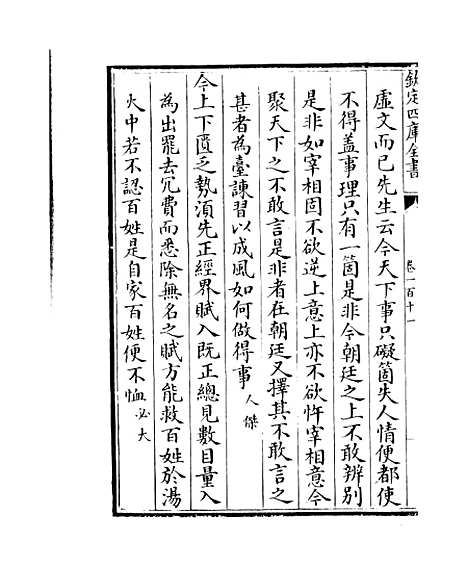 欽定四庫全書
卷一百十一
虛文而已先生云今天下事只礙箇失人情便都使
不得蓋事理只有一箇是非今朝廷之上不敢辨别
是非如宰相固不欲逆上意上亦不欲忤宰相意今
聚天下之不敢言是非者在朝廷又擇其不敢言之
甚者為臺諫習以成風如何做得事人傑
今上下匱乏勢須先正經界賦入既正總見數目量入
為出罷去冗費而悉除無名之賦方能救百姓於湯
火中若不認百姓是自家百姓便不恤必大